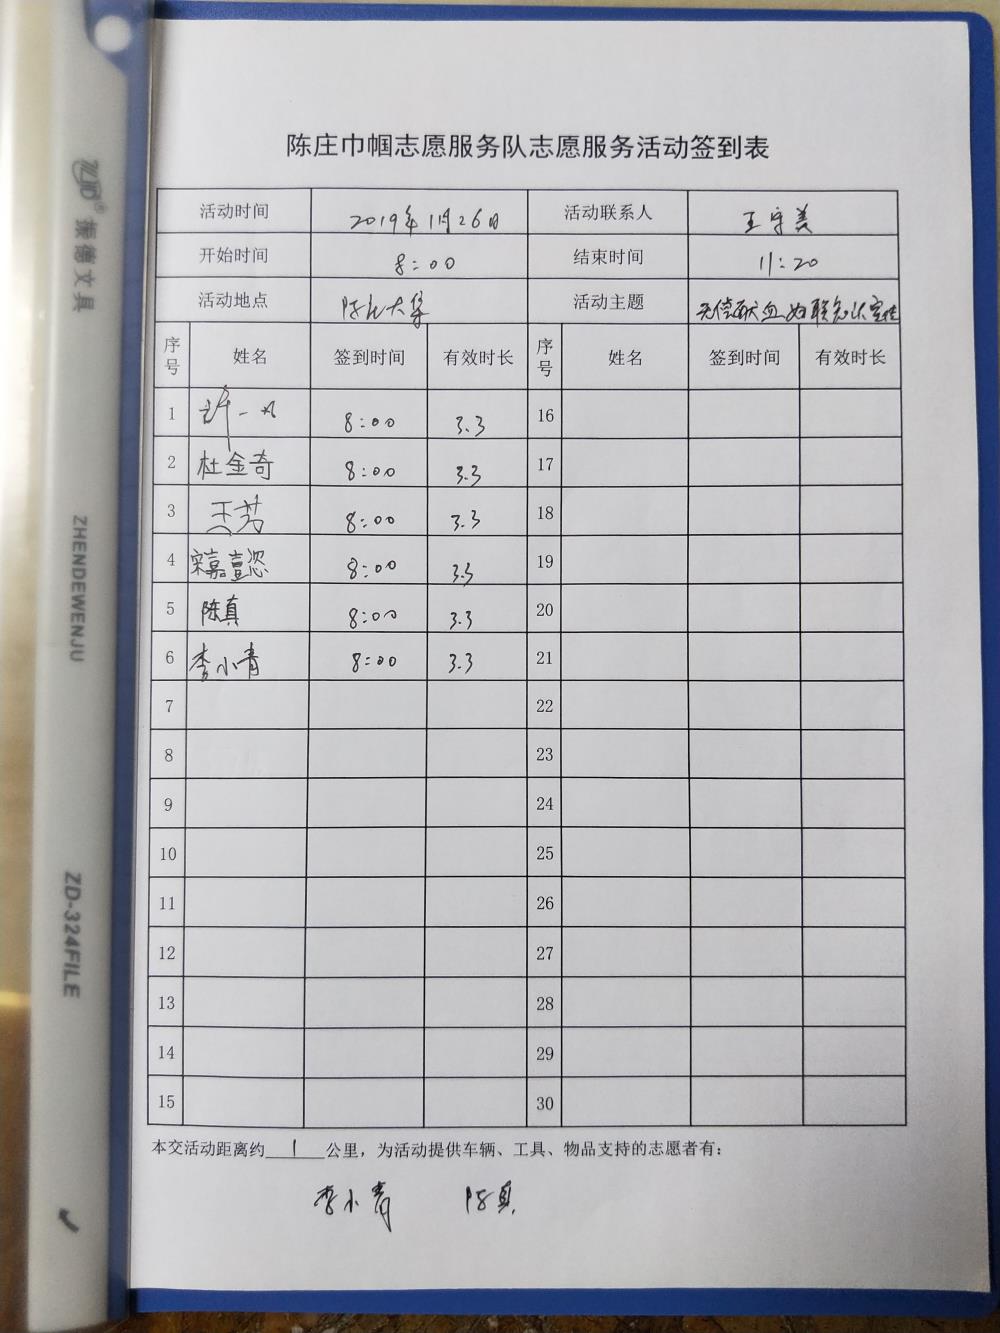 陈庄巾帼志愿服务队志愿服务活动签到表
活动时间 2019年11月26日 活动联系人 王守美
开始时间 8:00 结束时间 11:20
活动地点 陈庄大集 活动主题 无偿献血 妇联知识宣传
序号 姓名 签到时间 有效时长 序号 姓名 签到时间 有效时长
1 许一凡 8:00 3.3 16
2 杜金奇 8:00 3.3 17
3 王芳 8:00 3.3 18
4 宋嘉壹恣 8:00 3.3 19
5 陈真 8:00 3.3 20
6 李小青 8:00 3.3 21
7 22
8 23
9 24
10 25
11 26
12 27
13 28
14 29
15 30
本交活动距离约 1 公里，为活动提供车辆、工具、物品支持的志愿者有：
李小青 陈真
振德文具
ZHENDEWENJU
ZD-324FILE